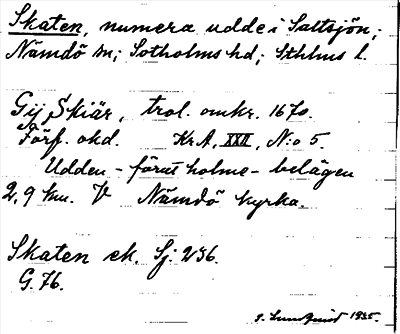 Skaten, numera udde i Saltsjön;
Nämdö sn; Sotholms hd; Sthlms l.
Gij Skiär, trol. omkr. 1670.
Förf. okd. Kr A, XXII, N:o 5.
Udden - förut holme - belägen
2,9 km. V Nämdö kyrka.
Skaten ek. Sj. 236.
G. 76.
S. Lundquist 1935.